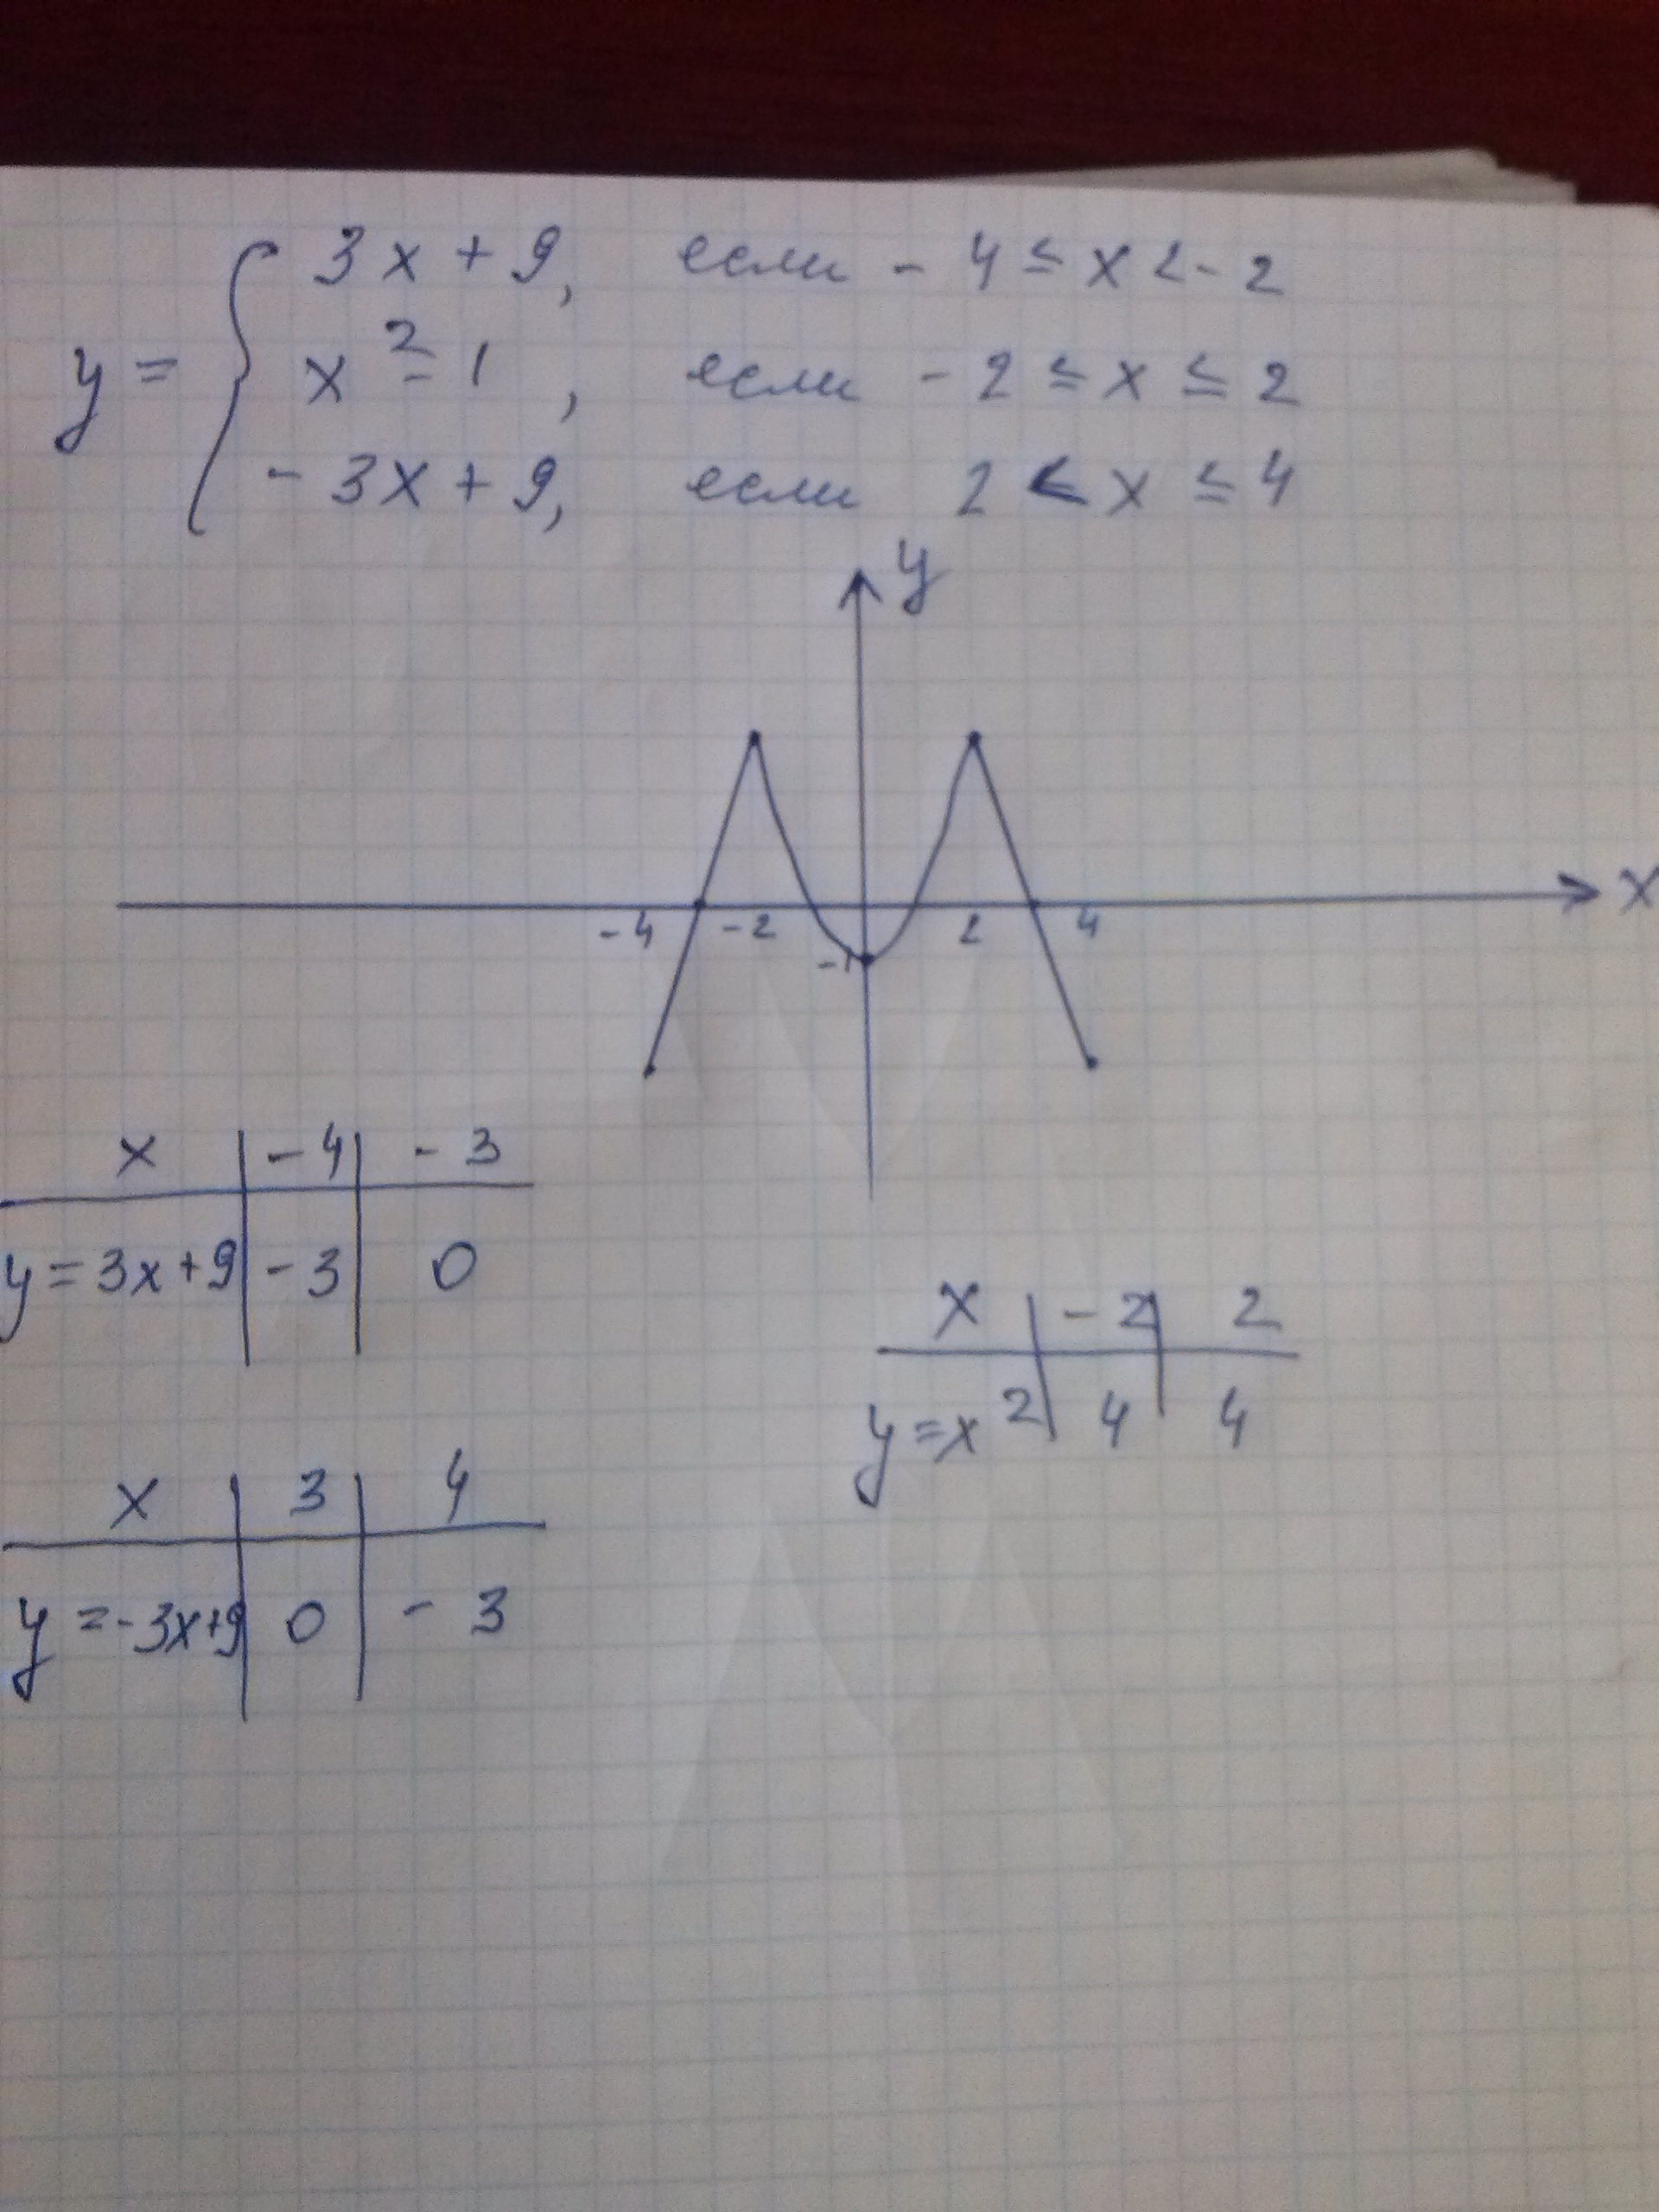 y = { 3x + 9, если - 4 ≤ x < - 2
x² - 1, если - 2 ≤ x ≤ 2
- 3x + 9, если 2 < x ≤ 4
y
x
-4 -2 2 4
-1
x | -4 | -3
y = 3x+9 | -3 | 0
x | -2 | 2
y = x² | 4 | 4
x | 3 | 4
y = -3x+9 | 0 | -3